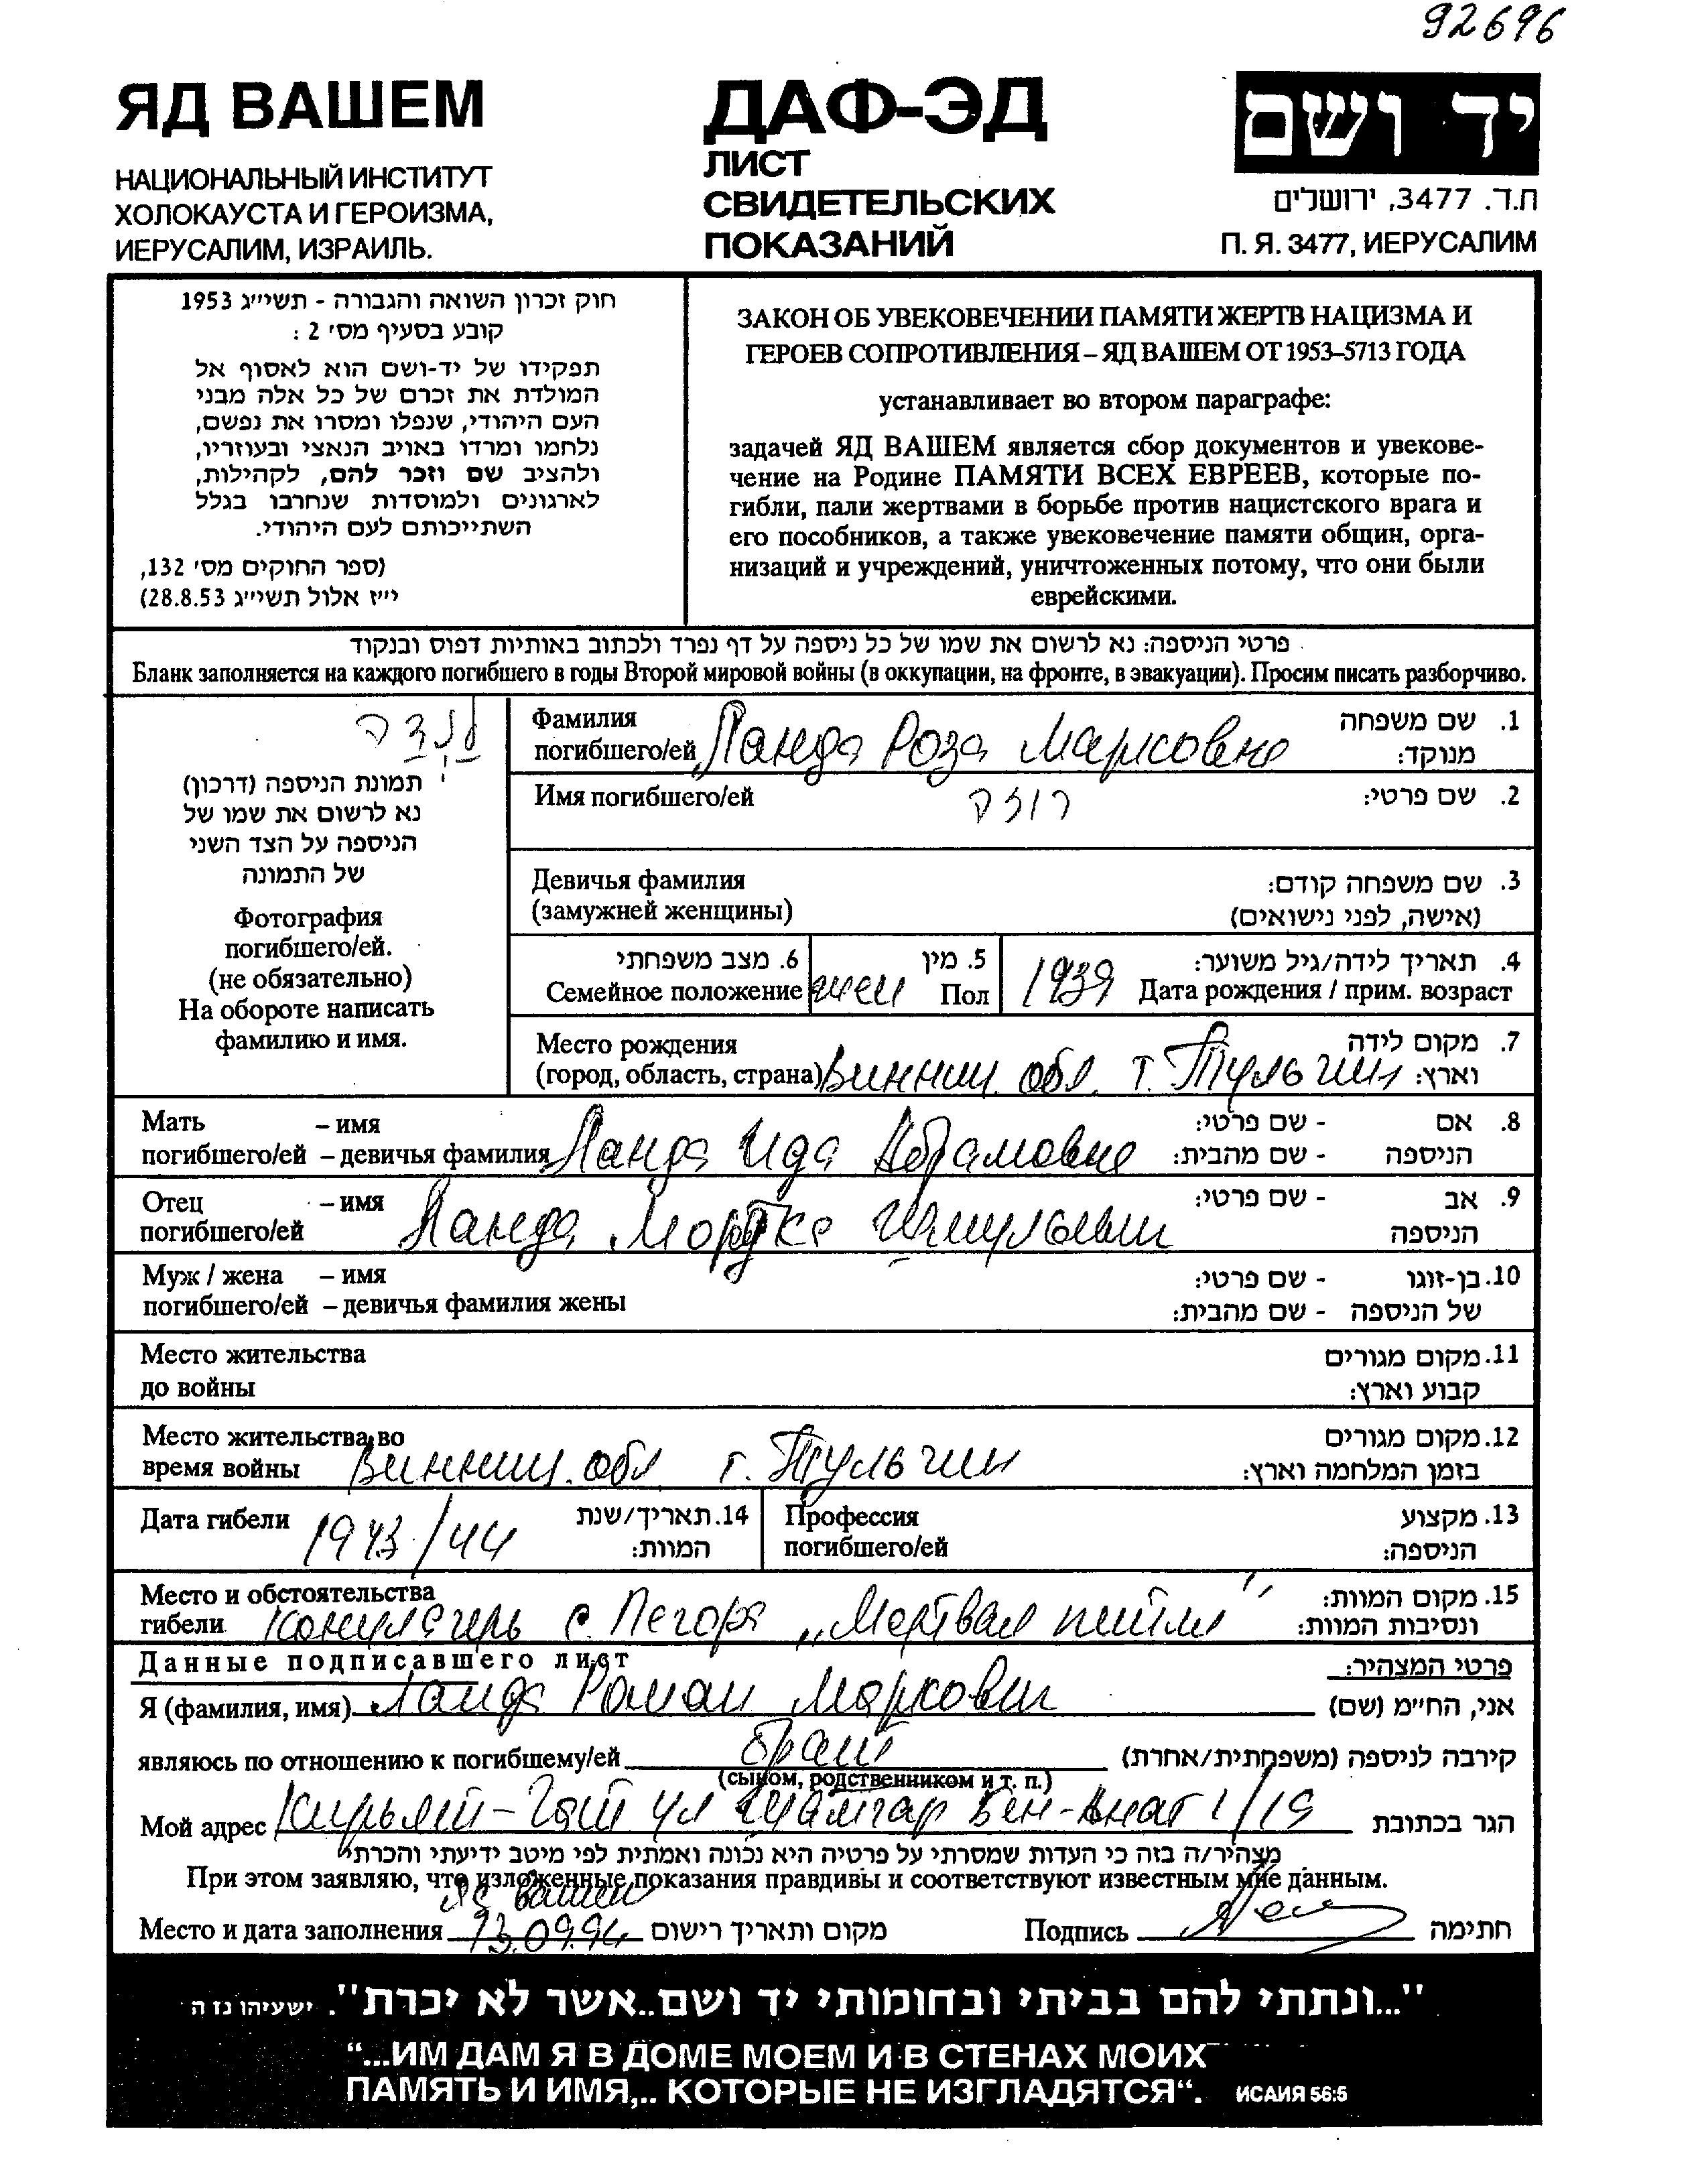 92696
ЯД ВАШЕМ
НАЦИОНАЛЬНЫЙ ИНСТИТУТ
ХОЛОКАУСТА И ГЕРОИЗМА,
ИЕРУСАЛИМ, ИЗРАИЛЬ.
ДАФ-ЭД
ЛИСТ
СВИДЕТЕЛЬСКИХ
ПОКАЗАНИЙ
יד ושם
ת.ד. 3477, ירושלים
П. Я. 3477, ИЕРУСАЛИМ
חוק זכרון השואה והגבורה - תשי״ג 1953
קובע בסעיף מס׳ 2 :
תפקידו של יד-ושם הוא לאסוף אל
המולדת את זכרם של כל אלה מבני
העם היהודי, שנפלו ומסרו את נפשם,
נלחמו ומרדו באויב הנאצי ובעוזריו,
ולהציב שם וזכר להם, לקהילות,
לארגונים ולמוסדות שנחרבו בגלל
השתייכותם לעם היהודי.
(ספר החוקים מס׳ 132,
י״ז אלול תשי״ג 28.8.53)
ЗАКОН ОБ УВЕКОВЕЧЕНИИ ПАМЯТИ ЖЕРТВ НАЦИЗМА И
ГЕРОЕВ СОПРОТИВЛЕНИЯ – ЯД ВАШЕМ ОТ 1953–5713 ГОДА
устанавливает во втором параграфе:
задачей ЯД ВАШЕМ является сбор документов и увекове-
чение на Родине ПАМЯТИ ВСЕХ ЕВРЕЕВ, которые по-
гибли, пали жертвами в борьбе против нацистского врага и
его пособников, а также увековечение памяти общин, орга-
низаций и учреждений, уничтоженных потому, что они были
еврейскими.
פרטי הניספה: נא לרשום את שמו של כל ניספה על דף נפרד ולכתוב באותיות דפוס ובנקוד
Бланк заполняется на каждого погибшего в годы Второй мировой войны (в оккупации, на фронте, в эвакуации). Просим писать разборчиво.
לנדה
תמונת הניספה (דרכון)
נא לרשום את שמו של
הניספה על הצד השני
של התמונה
Фотография
погибшего/ей.
(не обязательно)
На обороте написать
фамилию и имя.
Фамилия 1. שם משפחה
погибшего/ей Ланда Роза Марковна מנוקד:
Имя погибшего/ей רוזה 2. שם פרטי:
Девичья фамилия 3. שם משפחה קודם:
(замужней женщины) (אישה, לפני נישואים)
6. מצב משפחתי 5. מין 4. תאריך לידה/גיל משוער:
Семейное положение жен Пол 1939 Дата рождения / прим. возраст
Место рождения 7. מקום לידה
(город, область, страна) Винниц. обл. г. Тульчин וארץ:
Мать – имя 8. אם - שם פרטי:
погибшего/ей – девичья фамилия Ланда Ида Абрамовна הניספה - שם מהבית:
Отец – имя 9. אב - שם פרטי:
погибшего/ей Ланда Мордке Шмульевич הניספה
Муж / жена – имя 10. בן-זוגו - שם פרטי:
погибшего/ей – девичья фамилия жены של הניספה - שם מהבית:
Место жительства 11. מקום מגורים
до войны קבוע וארץ:
Место жительства во 12. מקום מגורים
время войны Винниц. обл г. Тульчин בזמן המלחמה וארץ:
Дата гибели 1943/44 14. תאריך/שנת Профессия 13. מקצוע
המוות: погибшего/ей הניספה:
Место и обстоятельства 15. מקום המוות:
гибели Концлагерь с. Печора „Мертвая петля" ונסיבות המוות:
Данные подписавшего лист פרטי המצהיר:
Я (фамилия, имя) Ланда Роман Маркович אני, החי״מ (שם)
являюсь по отношению к погибшему/ей брат קירבה לניספה (משפחתית/אחרת)
(сыном, родственником и т. п.)
Мой адрес Кирьят-Гат ул Шамгар Бен-Анат 1/19 הגר בכתובת
מצהיר/ה בזה כי העדות שמסרתי על פרטיה היא נכונה ואמתית לפי מיטב ידיעתי והכרתי
При этом заявляю, что изложенные показания правдивы и соответствуют известным мне данным.
Яд вашем
Место и дата заполнения 13.09.94 מקום ותאריך רישום Подпись חתימה
"...ונתתי להם בביתי ובחומותי יד ושם..אשר לא יכרת". ישעיהו נז ה
“...ИМ ДАМ Я В ДОМЕ МОЕМ И В СТЕНАХ МОИХ
ПАМЯТЬ И ИМЯ,.. КОТОРЫЕ НЕ ИЗГЛАДЯТСЯ“. ИСАИЯ 56:5